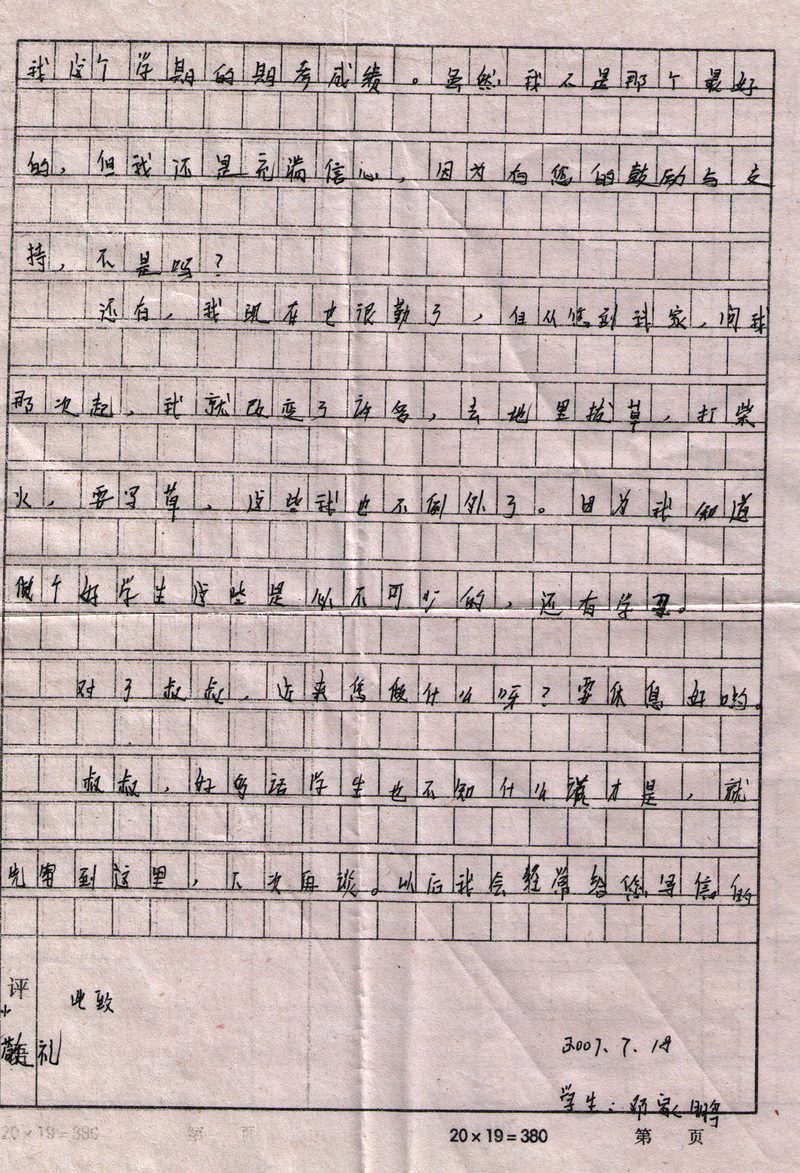 我这个学期的期考成绩。虽然我不是那个最好
的，但我还是充满信心，因为有您的鼓励与支
持，不是吗？
还有，我现在也很勤了，但从您到我家，问我
那次起，我就改变了许多，去地里拔草，打柴
火，要写草，这些我也不例外了。因为我知道
做个好学生这些是必不可少的，还有学习。
对了叔叔，近来您做什么呀？要休息好哟。
叔叔，好多话学生也不知什么说才是，就
先写到这里，下次再谈。以后我会经常给您写信的
评
此致
敬礼
2007.7.18
学生：邓家鹏
20×19=380 第 页
20×19=380 第 页